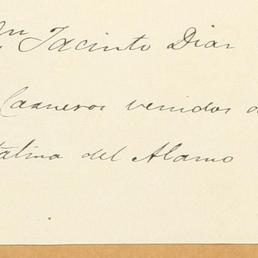 Jacinto Diaz
Carneros venidos d
talina del Alamo